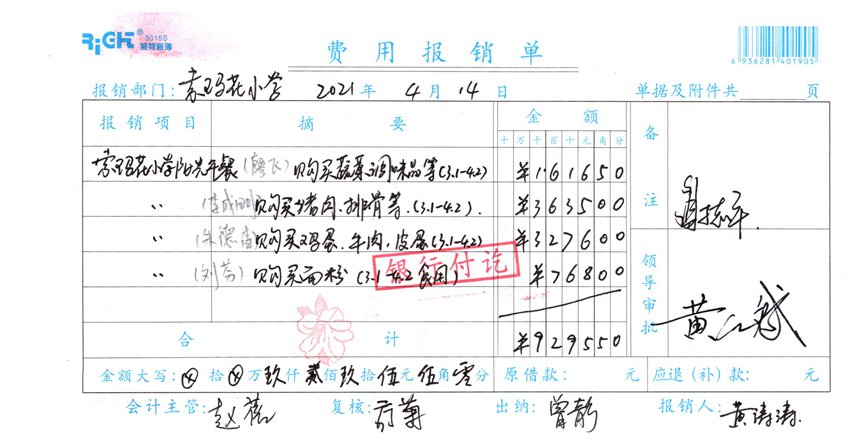 RiCH ® 3015S
莱特账簿
费用报销单
6 936281 401905
报销部门：索玛花小学 2021年 4月 14日 单据及附件共 页
报销项目 摘要 金额 备注
十万千百十元角分
索玛花小学阳光午餐 购买蔬菜调味品等(3.1-4.2) ¥161650
〃 购买猪肉、排骨等.(3.1-4.2). ¥363500
〃 购买鸡蛋、牛肉、皮蛋(3.1-4.2) ¥327600
〃 (刘芬) 购买面粉 (3.1-4.2食用) ¥76800
银行付讫
领导审批
合计 ¥929550
金额大写：⊗拾⊗万玖仟贰佰玖拾伍元伍角零分 原借款： 元 应退（补）款： 元
会计主管： 复核： 出纳：曾静 报销人：黄涛涛